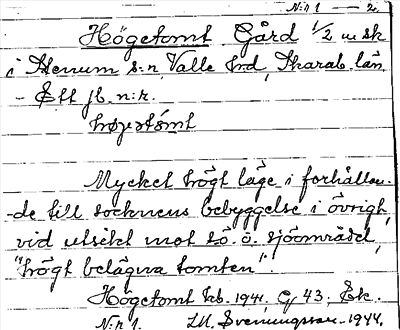 N:r 1 — 2.
Högetomt Gård 1/2 m sk
i Stenum s:n, Valle hrd, Skarab. län
- Ett jb. n:r.
Mycket högt läge i förhållan-
-de till socknens bebyggelse i övrigt,
vid utsikt mot s.ö. sjöområdet,
"högt belägna tomten".
Högetomt kb. 1941. Gj 43; Ek.
N:r 1. I.M. Svenungsson 1944.